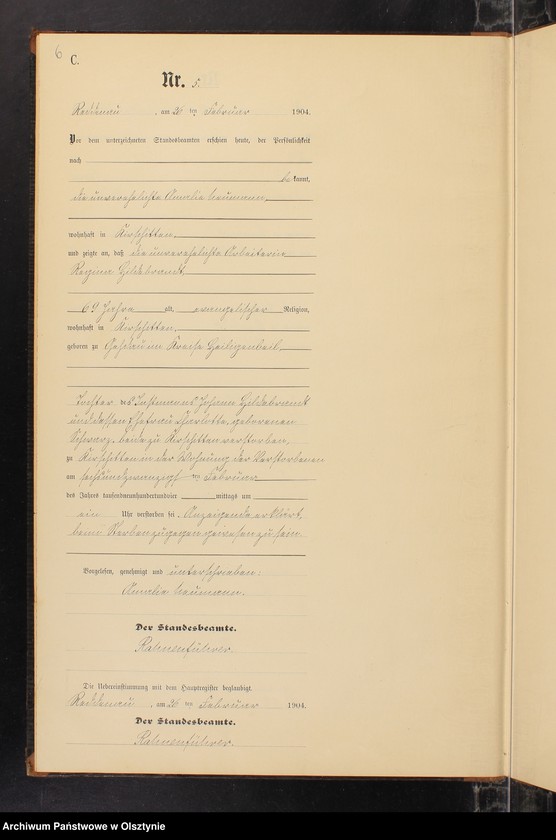 6
C.
Nr. 5.
Reddenau, am 26 ten Februar 1904.
Vor dem unterzeichneten Standesbeamten erschien heute, der Persönlichkeit
nach
be kannt,
die unverehelichte Amalie Naumann
wohnhaft in Kirschitten
und zeigte an, daß die unverehelichte Arbeiterin
Regina Hildebrandt
69 Jahre alt, evangelischer Religion,
wohnhaft in Kirschitten,
geboren zu Kreise Heiligenbeil
Tochter des Instmanns Johann Hildebrandt
und dessen Ehefrau Charlotte, geborenen
Schwarz, beide zu Kirschitten verstorben,
zu Kirschitten in der Wohnung der Verstorbenen
am sechsundzwanzigsten Februar
des Jahres tausendneunhundertundvier mittags um
ein Uhr verstorben sei. Anzeigende erklärt,
beim Sterben zugegen gewesen zu sein
Vorgelesen, genehmigt und unterschrieben:
Amalie Naumann.
Der Standesbeamte.
Die Uebereinstimmung mit dem Hauptregister beglaubigt.
Reddenau, am 26 ten Februar 1904.
Der Standesbeamte.
Archiwum Państwowe w Olsztynie